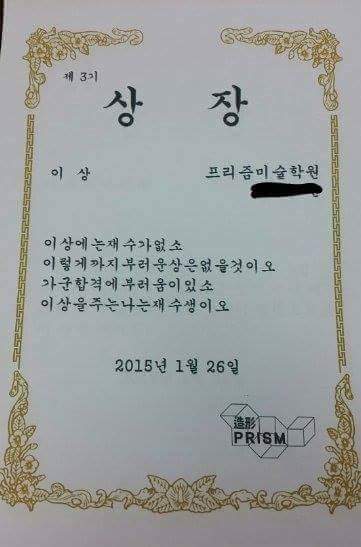 제 3기
상 장
이 상 프리즘미술학원
이상에는재수가없소
이렇게까지부러운상은없을것이오
가군합격에부러움이있소
이상을주는나는재수생이오
2015년 1월 26일
造形
PRISM